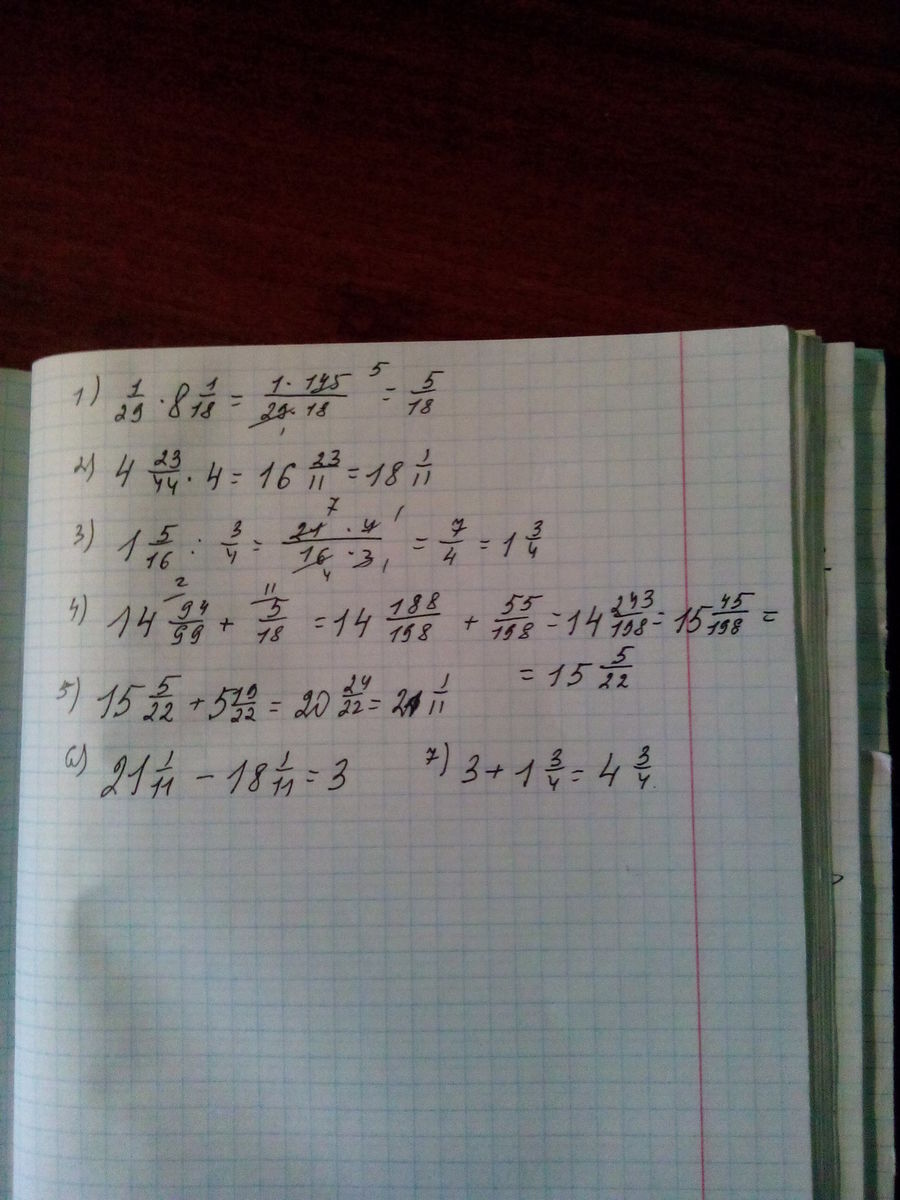 1) 1/29 · 8 1/18 = 1 · 145 / 29 · 18 = 5/18
2) 4 23/44 · 4 = 16 23/11 = 18 1/11
3) 1 5/16 : 3/4 = 21 · 4 / 16 · 3 = 7/4 = 1 3/4
4) 14 94/99 + 5/18 = 14 188/198 + 55/198 = 14 243/198 = 15 45/198 =
= 15 5/22
5) 15 5/22 + 5 19/22 = 20 24/22 = 21 1/11
6) 21 1/11 − 18 1/11 = 3 7) 3 + 1 3/4 = 4 3/4